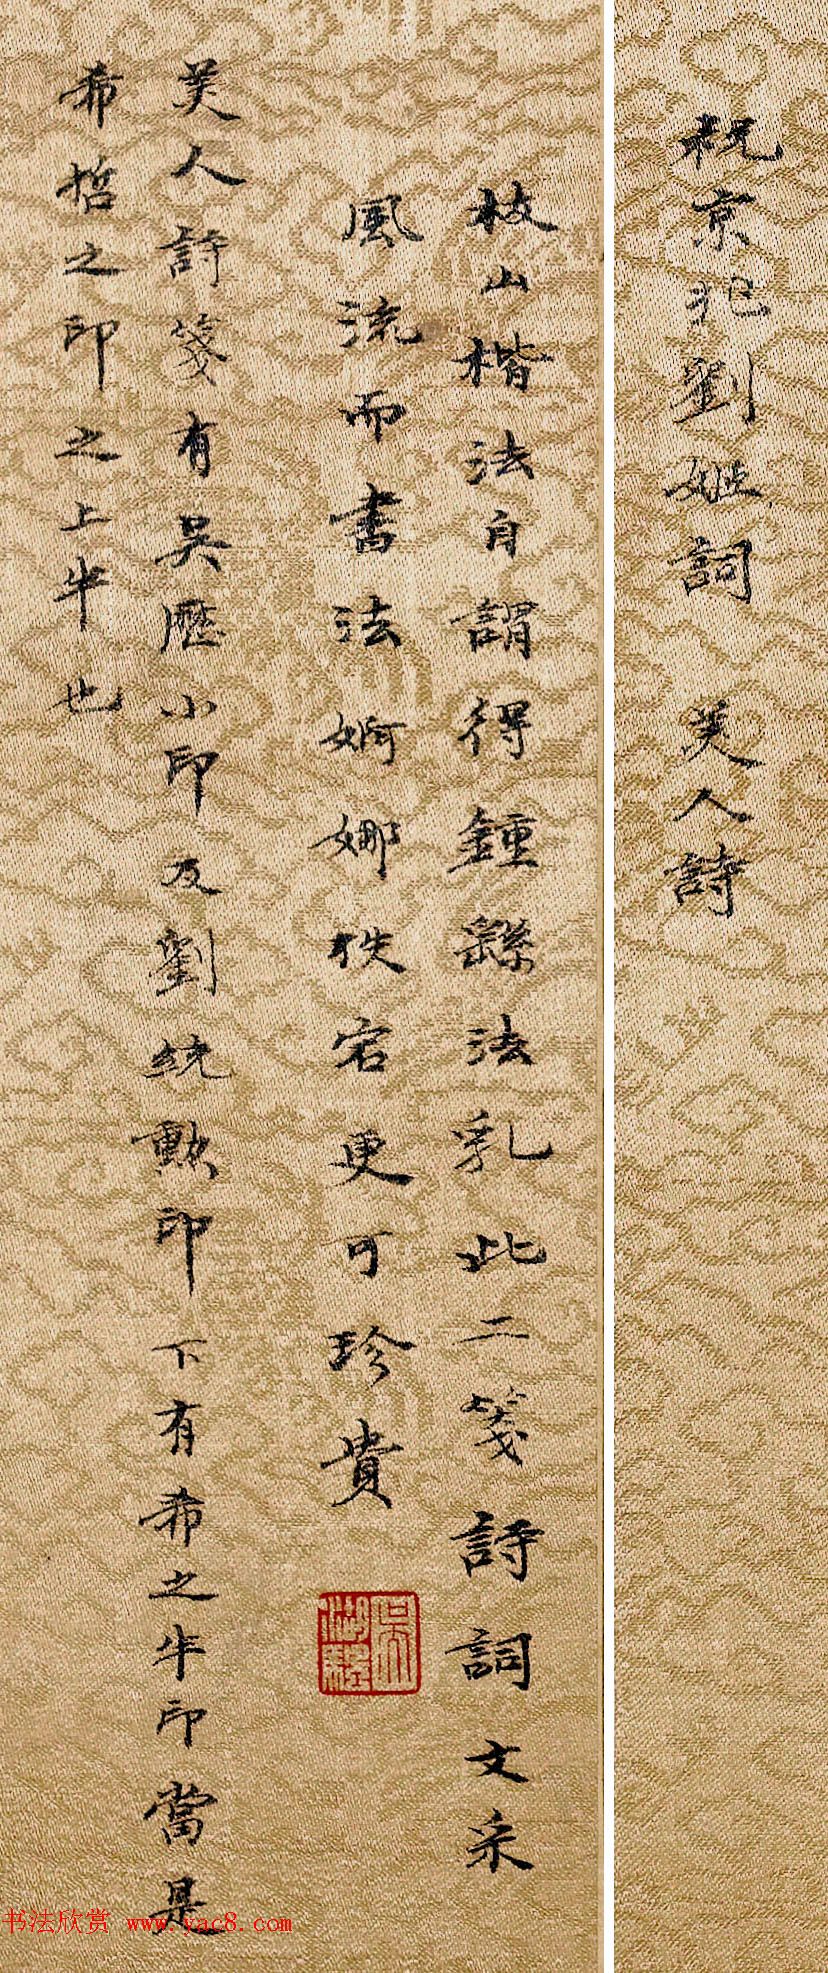 祝京兆劉姬詞　美人詩
枝山楷法自謂得鍾繇法乳此二箋詩詞文采
風流而書法婀娜佚宕更可珍貴
吳湖帆
美人詩箋有吳歷小印及劉統勲印下有希之半印當是
希哲之印之上半也
书法欣赏 www.yac8.com